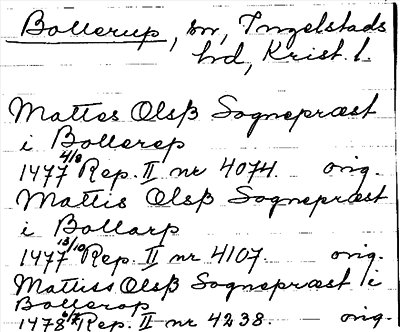 Bollerup, sn, Ingelstads
hd, Krist. l.
Mattes Olsß Sognepræst
i Bollerep
1477 4/8 Rep. II nr 4074. orig.
Mattis Olsß Sognepræst
i Bollarp
1477 13/10 Rep. II nr 4107. orig.
Matiss Olsß Sognepræst i
Bollerop
1478 Rep. II nr 4238. orig.